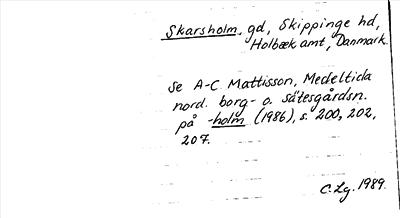 Skarsholm, gd, Skippinge hd,
Holbæk amt, Danmark.
Se A-C Mattisson, Medeltida
nord. borg- o. sätesgårdsn.
på -holm (1986), s. 200, 202,
207.
C. Lg. 1989.